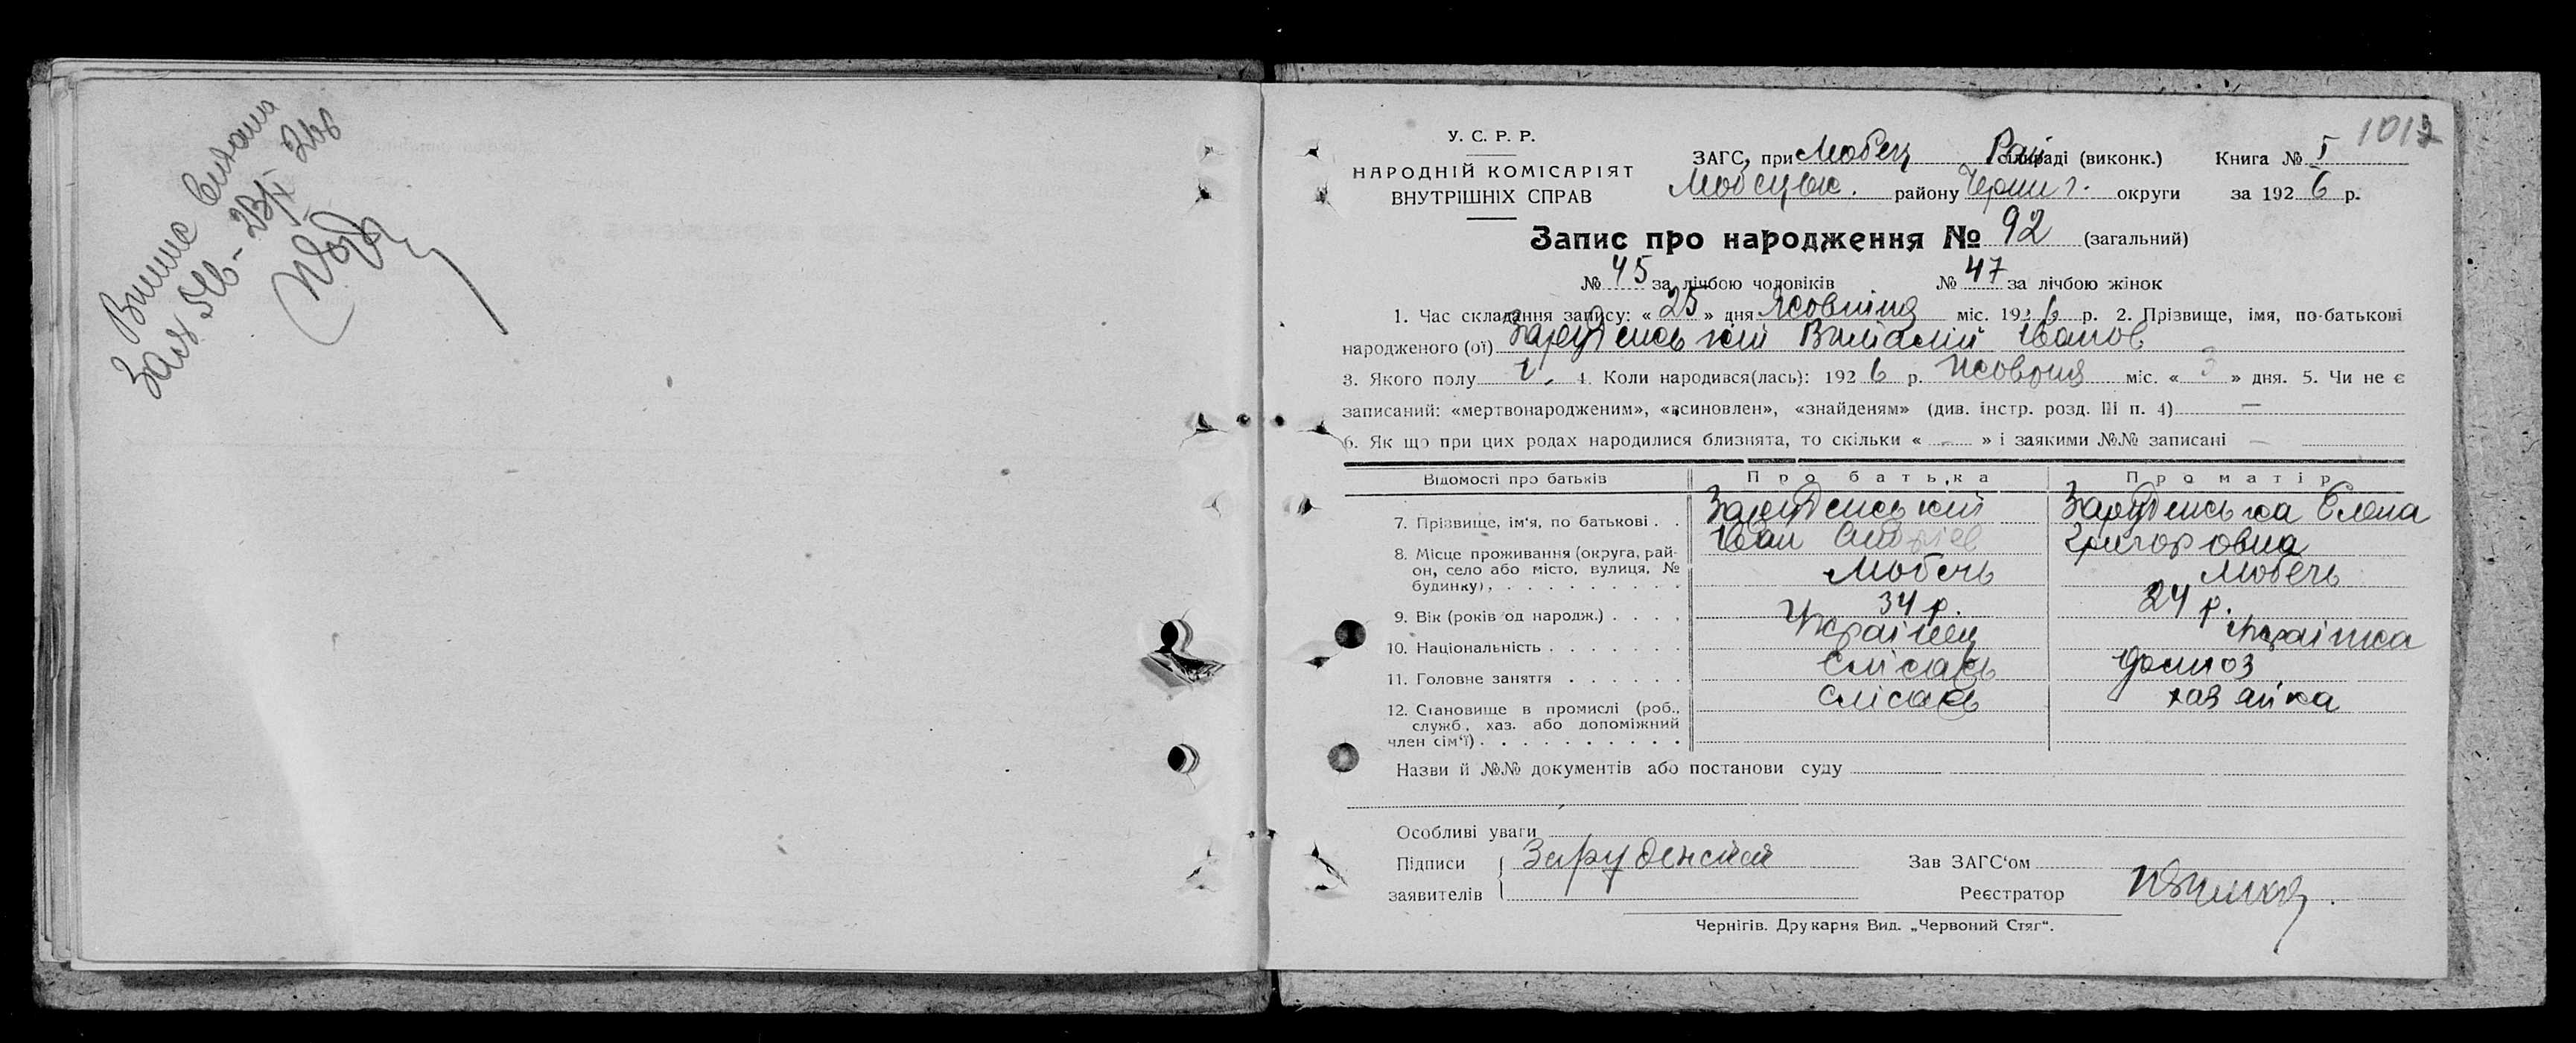 Випис видана
У. С. Р. Р.
НАРОДНІЙ КОМІСАРІЯТ
ВНУТРІШНІХ СПРАВ
1012
ЗАГС, при Любец Рай сільраді (виконк.) Книга № I
Любецьк. району Черниг. округи за 1926 р.
Запис про народження № 92 (загальний)
№ 45 за лічбою чоловіків № 47 за лічбою жінок
1. Час складання запису: « 25 » дня Жовтня міс. 1926 р. 2. Прізвище, імя, по-батькові
народженого (ої) Заруденський Виталій Іванов
3. Якого полу ч. 4. Коли народився(лась): 1926 р. Жовтня міс. « 3 » дня. 5. Чи не є
записаний: «мертвонародженим», «всиновлен», «знайденям» (див. інстр. розд. III п. 4) —
6. Як що при цих родах народилися близнята, то скільки « - » і заякими №№ записані —
Відомості про батьків Про батька Про матір
7. Прізвище, ім'я, по батькові . . Заруденський Заруденська Елена
Іван Андріев Григоровна
8. Місце проживання (округа, рай-
он, село або місто, вулиця, № Любечь Любечь
будинку),
9. Вік (років од народж.) . . . . 34 р. 24 р.
10. Національність . . . . . . . Українец Українка
11. Головне заняття . . . . . . Слісарь
12. Становище в промислі (роб., Слісарь хазяйка
служб., хаз. або допоміжний
член сім'ї) . . . . . . . . . .
Назви й №№ документів або постанови суду
Особливі уваги
Підписи Заруденский Зав ЗАГС'ом
заявителів Реєстратор
Чернігів. Друкарня Вид. „Червоний Стяг“.